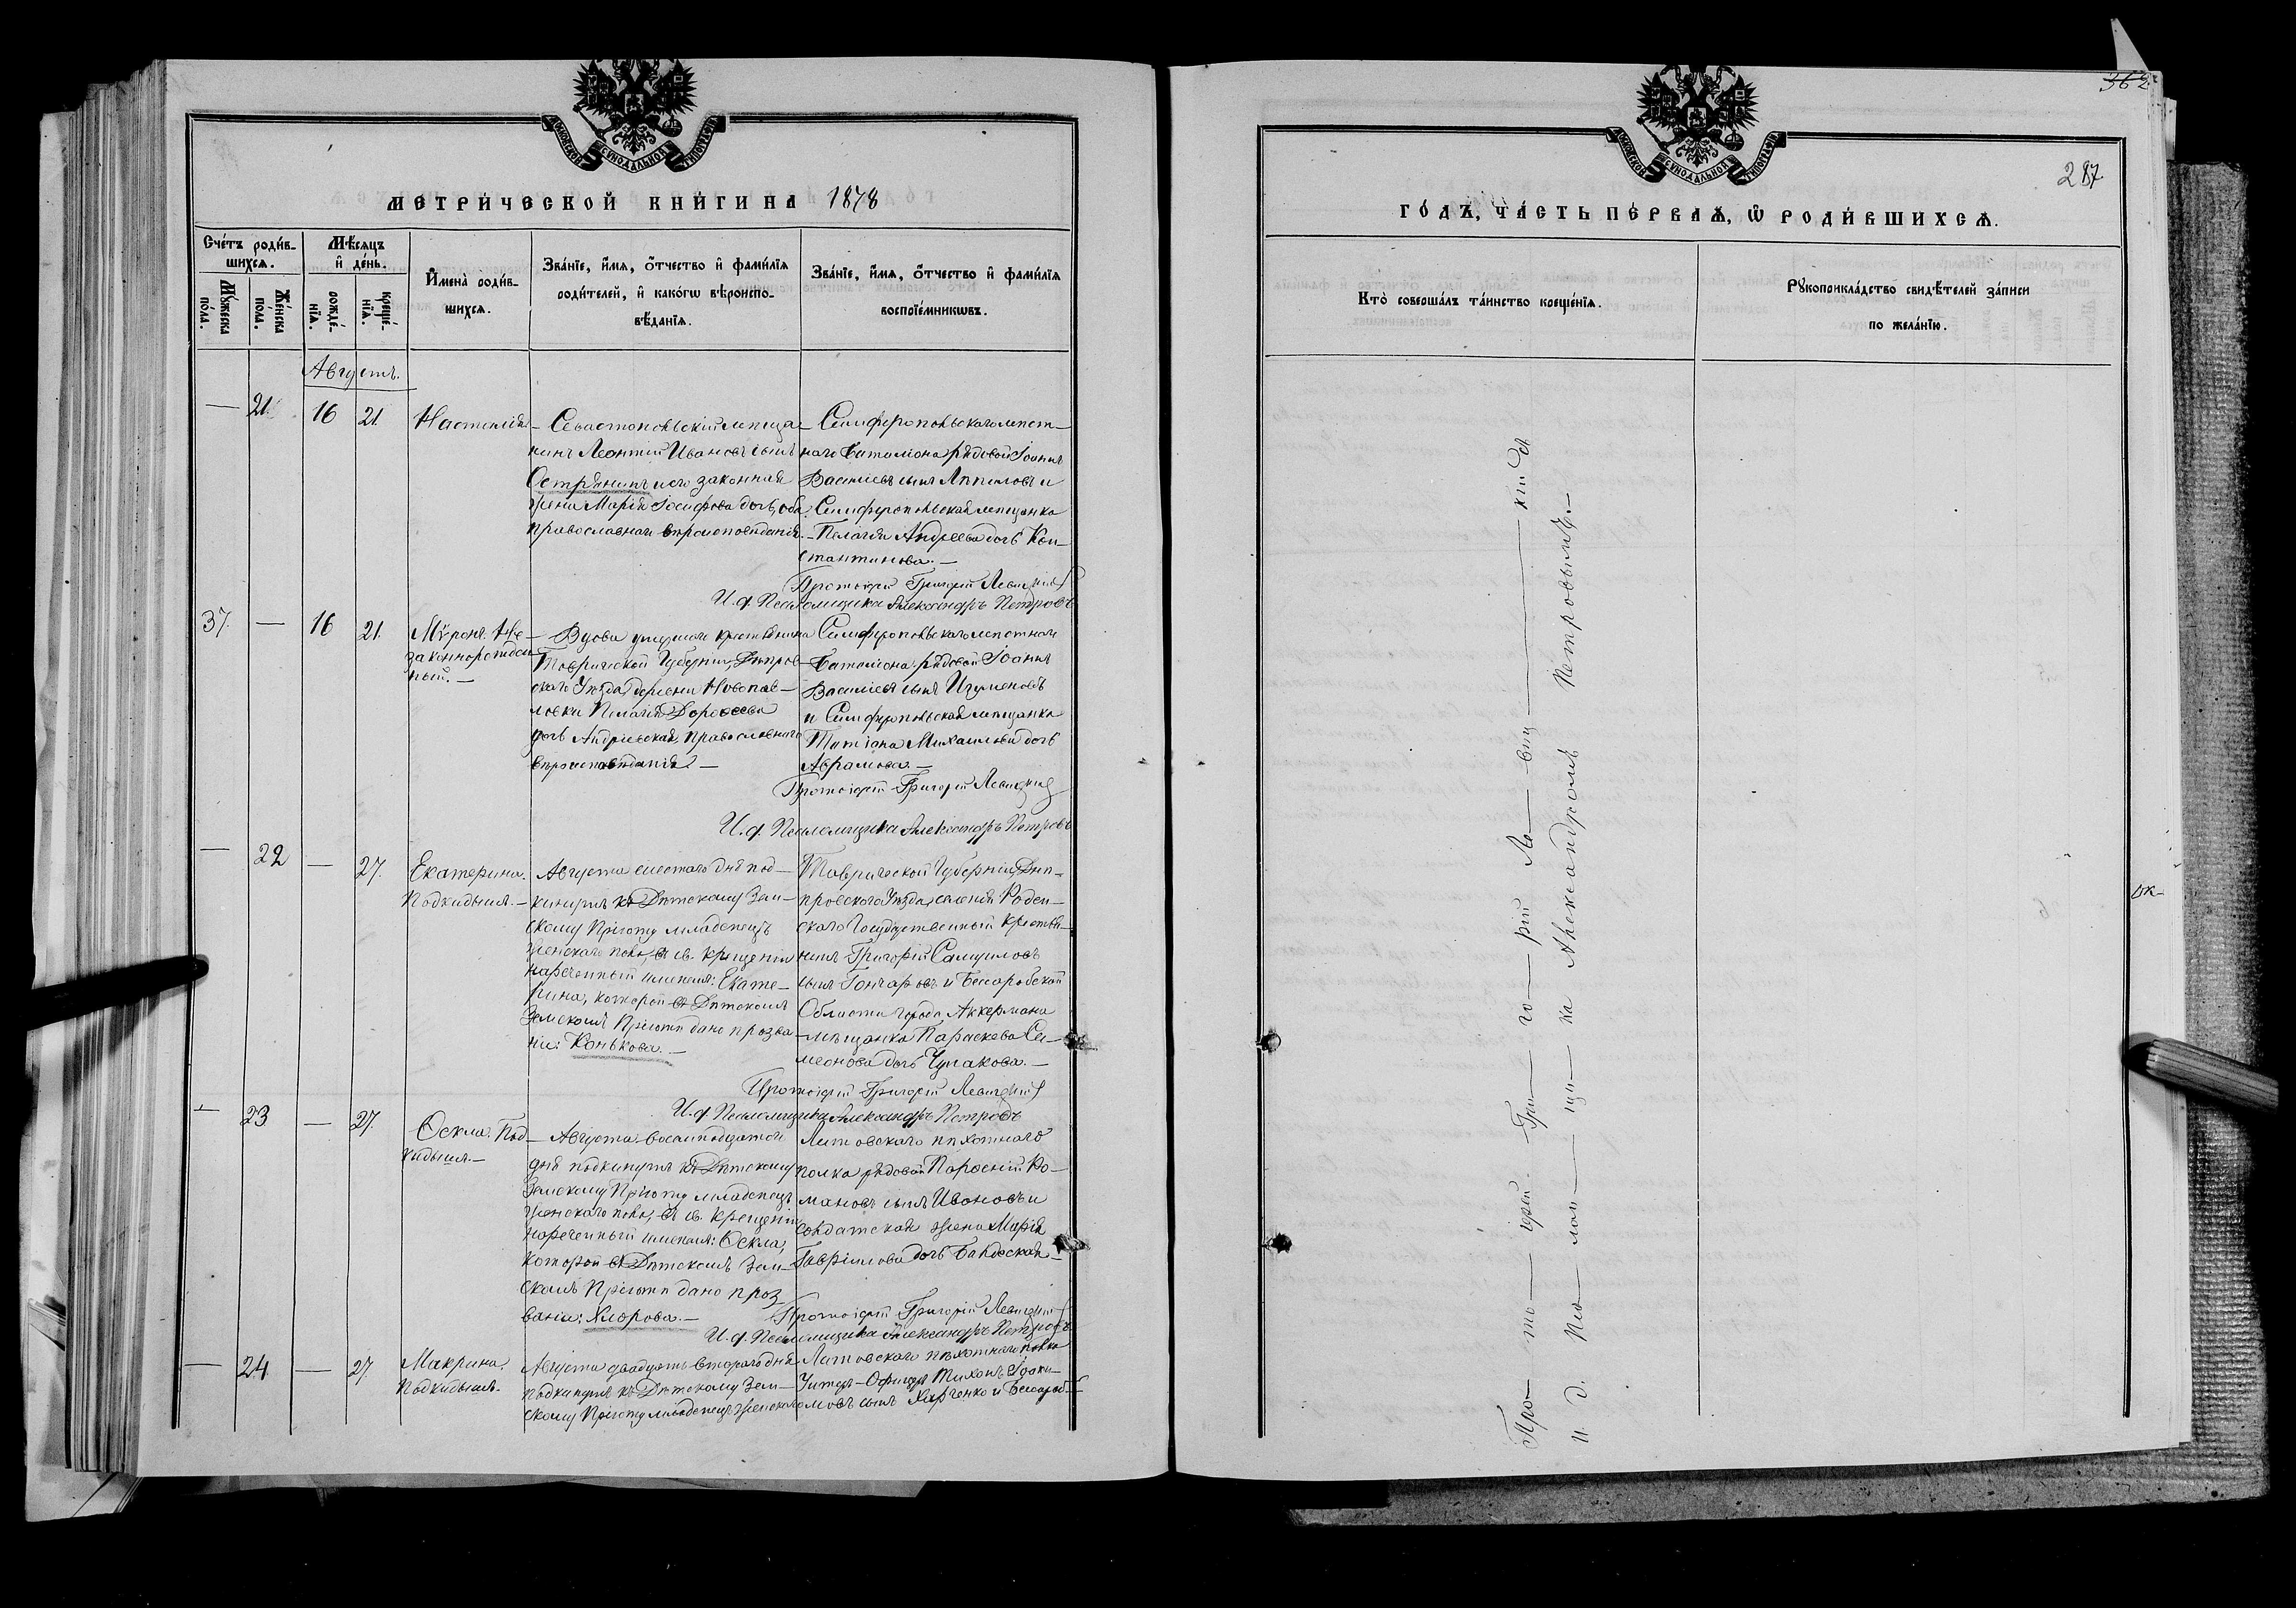 МОСКОВСКОЙ СУНОДАЛЬНОЙ ТИПОГРАФІИ
МЕТРИ́ЧЕСКОЙ КНИ́ГИ НА 1878
Сче́тъ роди́в-
шихсѧ.
Мѣ́сѧцъ
и҆ де́нь.
Мꙋ́жеска
пола.
Же́нска
по́ла.
рожде́-
нїѧ.
креще́-
нїѧ.
И҆мена̀ роди́в-
шихсѧ.
Зва́нїе, и҆́мѧ, ѻ҆́тчество и҆ фами́лїѧ
роди́телей, и҆ како́гѡ вѣроиспо-
вѣ́данїѧ.
Зва́нїе, и҆́мѧ, ѻ҆́тчество и҆ фами́лїѧ
воспрїе́мникѡвъ.
Августъ.
— 21. 16 21. Настасія
Севастопольскій мѣща-
нинъ Леонтій Ивановъ сынъ
Остряминъ и его законная
жена Марія Іосифова дочь, оба
православнаго вѣроисповѣданія.
Симферопольскаго мѣст-
наго баталіона рядовой Іоаннъ
Василіевъ сынъ и
Симферопольская мѣщанка
Пелагія Андреева дочь Кон-
стантинова.—
Протоіерей Григорій
И. д. Псаломщика Александръ Петровъ
37. — 16 21. Мѵронъ. Не-
законнорожден-
ный.—
Вдова умершаго крестьянина
Таврической Губерніи, Днѣпров-
скаго Уѣзда, деревни Новопав-
ловки Пелагія Дороѳеева
дочь Андріевская, православнаго
вѣроисповѣданія.—
Симферопольскаго мѣстнаго
баталіона рядовой Іоаннъ
Василіевъ сынъ Игуменовъ
и Симферопольская мѣщанка
Татіана Михаилова дочь
Аврамова.—
Протоіерей Григорій
И. д. Псаломщика Александръ Петровъ
— 22 — 27. Екатерина.
Подкидышъ.—
Августа шестаго дня под-
кинутъ къ Дѣтскому Зем-
скому Пріюту младенецъ
женскаго пола, въ св. крещеніи
нареченный именемъ: Екате-
рина, которой въ Дѣтскомъ
Земскомъ Пріютѣ дано прозва-
ніе: Конькова.—
Таврической Губерніи, Днѣ-
провскаго Уѣзда, селенія Роден-
скаго Государственный крестья-
нинъ Григорій Самуиловъ
сынъ Гончаровъ и Бессарабской
Области города Аккермана
мѣщанка Параскева Си-
меонова дочь Чумакова.—
Протоіерей Григорій
И. д. Псаломщика Александръ Петровъ
— 23 — 27. Ѳекла. Под-
кидышъ.—
Августа восемнадцатаго
дня подкинутъ къ Дѣтскому
Земскому Пріюту младенецъ
женскаго пола, въ св. крещеніи
нареченный именемъ: Ѳекла,
которой въ Дѣтскомъ Зем-
скомъ Пріютѣ дано проз-
ваніе: Хлорова.—
Литовскаго пѣхотнаго
полка рядовой Парѳеній Ро-
мановъ сынъ Ивановъ и
солдатская жена Марія
Гавріилова дочь
Протоіерей Григорій
И. д. Псаломщика Александръ Петровъ
— 24. — 27. Макрина.
Подкидышъ.
Августа двадцать втораго дня
подкинутъ къ Дѣтскому Зем-
скому Пріюту младенецъ женскаго
Литовскаго пѣхотнаго полка
Унтеръ-Офицеръ Тихонъ Іоаки-
мовъ сынъ Харченко и Бессараб-
МОСКОВСКОЙ СУНОДАЛЬНОЙ ТИПОГРАФІИ
362
287
ГО́ДЪ, ЧА́СТЬ ПЕ́РВАѦ, Ѡ҆ РОДИ́ВШИХСѦ.
Кто̀ соверша́лъ та́инство креще́нїѧ.
Рꙋкоприкла́дство свидѣ́телей за́писи
по жела́нїю.
Про— то— іерей Гри— го— рій Ле— виц— кій
И. д. Пса— лом— щи— ка Александръ Петровъ.—